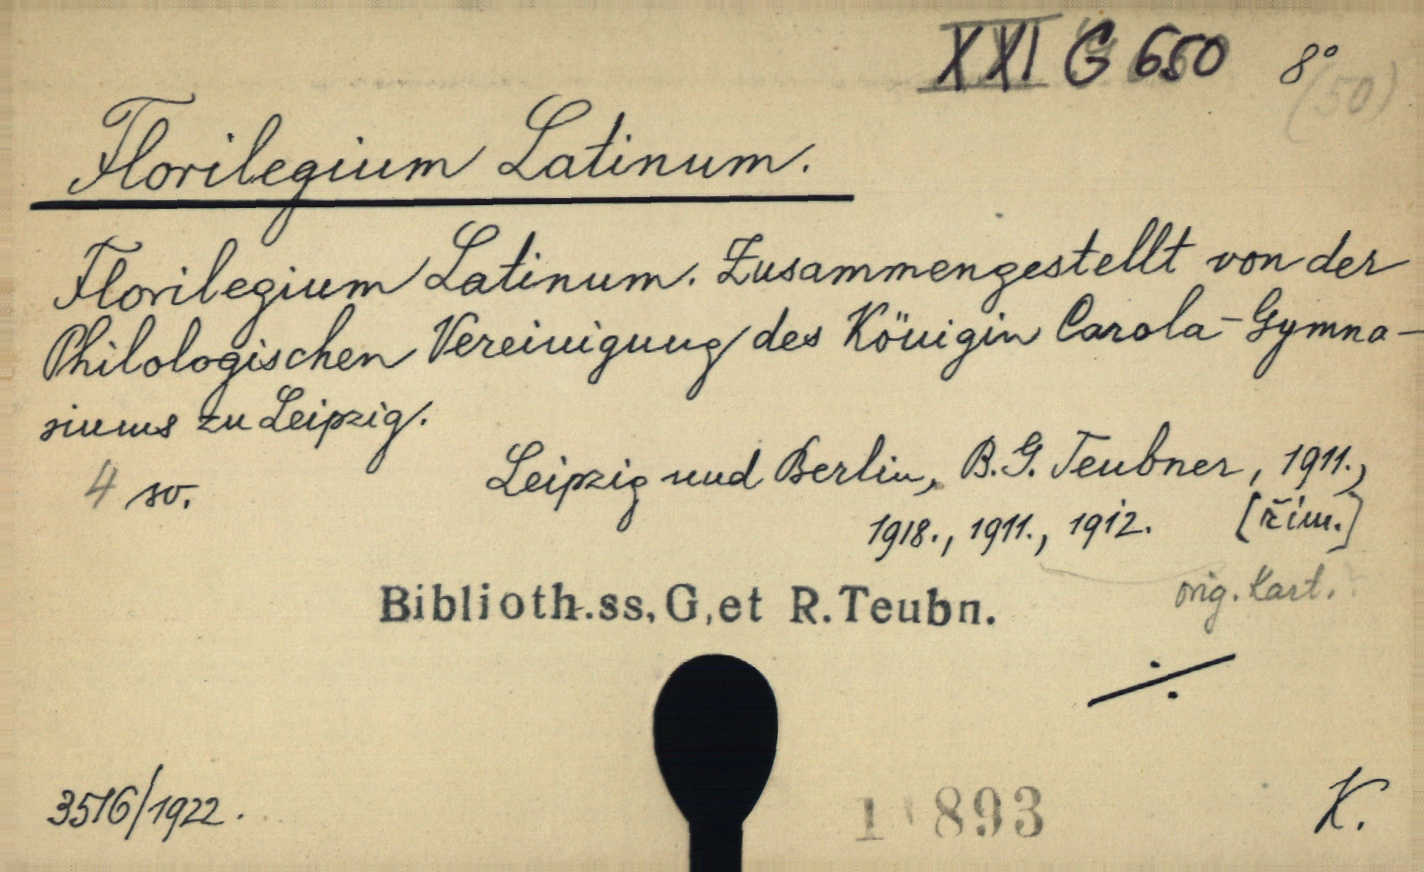 XXI G 650 8°
(50)
Florilegium Latinum.
Florilegium Latinum. Zusammengestellt von der
Philologischen Vereinigung des Königin Carola-Gymna-
siums zu Leipzig.
Leipzig und Berlin, B.G. Teubner, 1911.,
4 sv.
1918., 1911., 1912. [řím.]
orig. Kart.
Biblioth.ss,G,et R.Teubn.
3516/1922.
1 893
K.